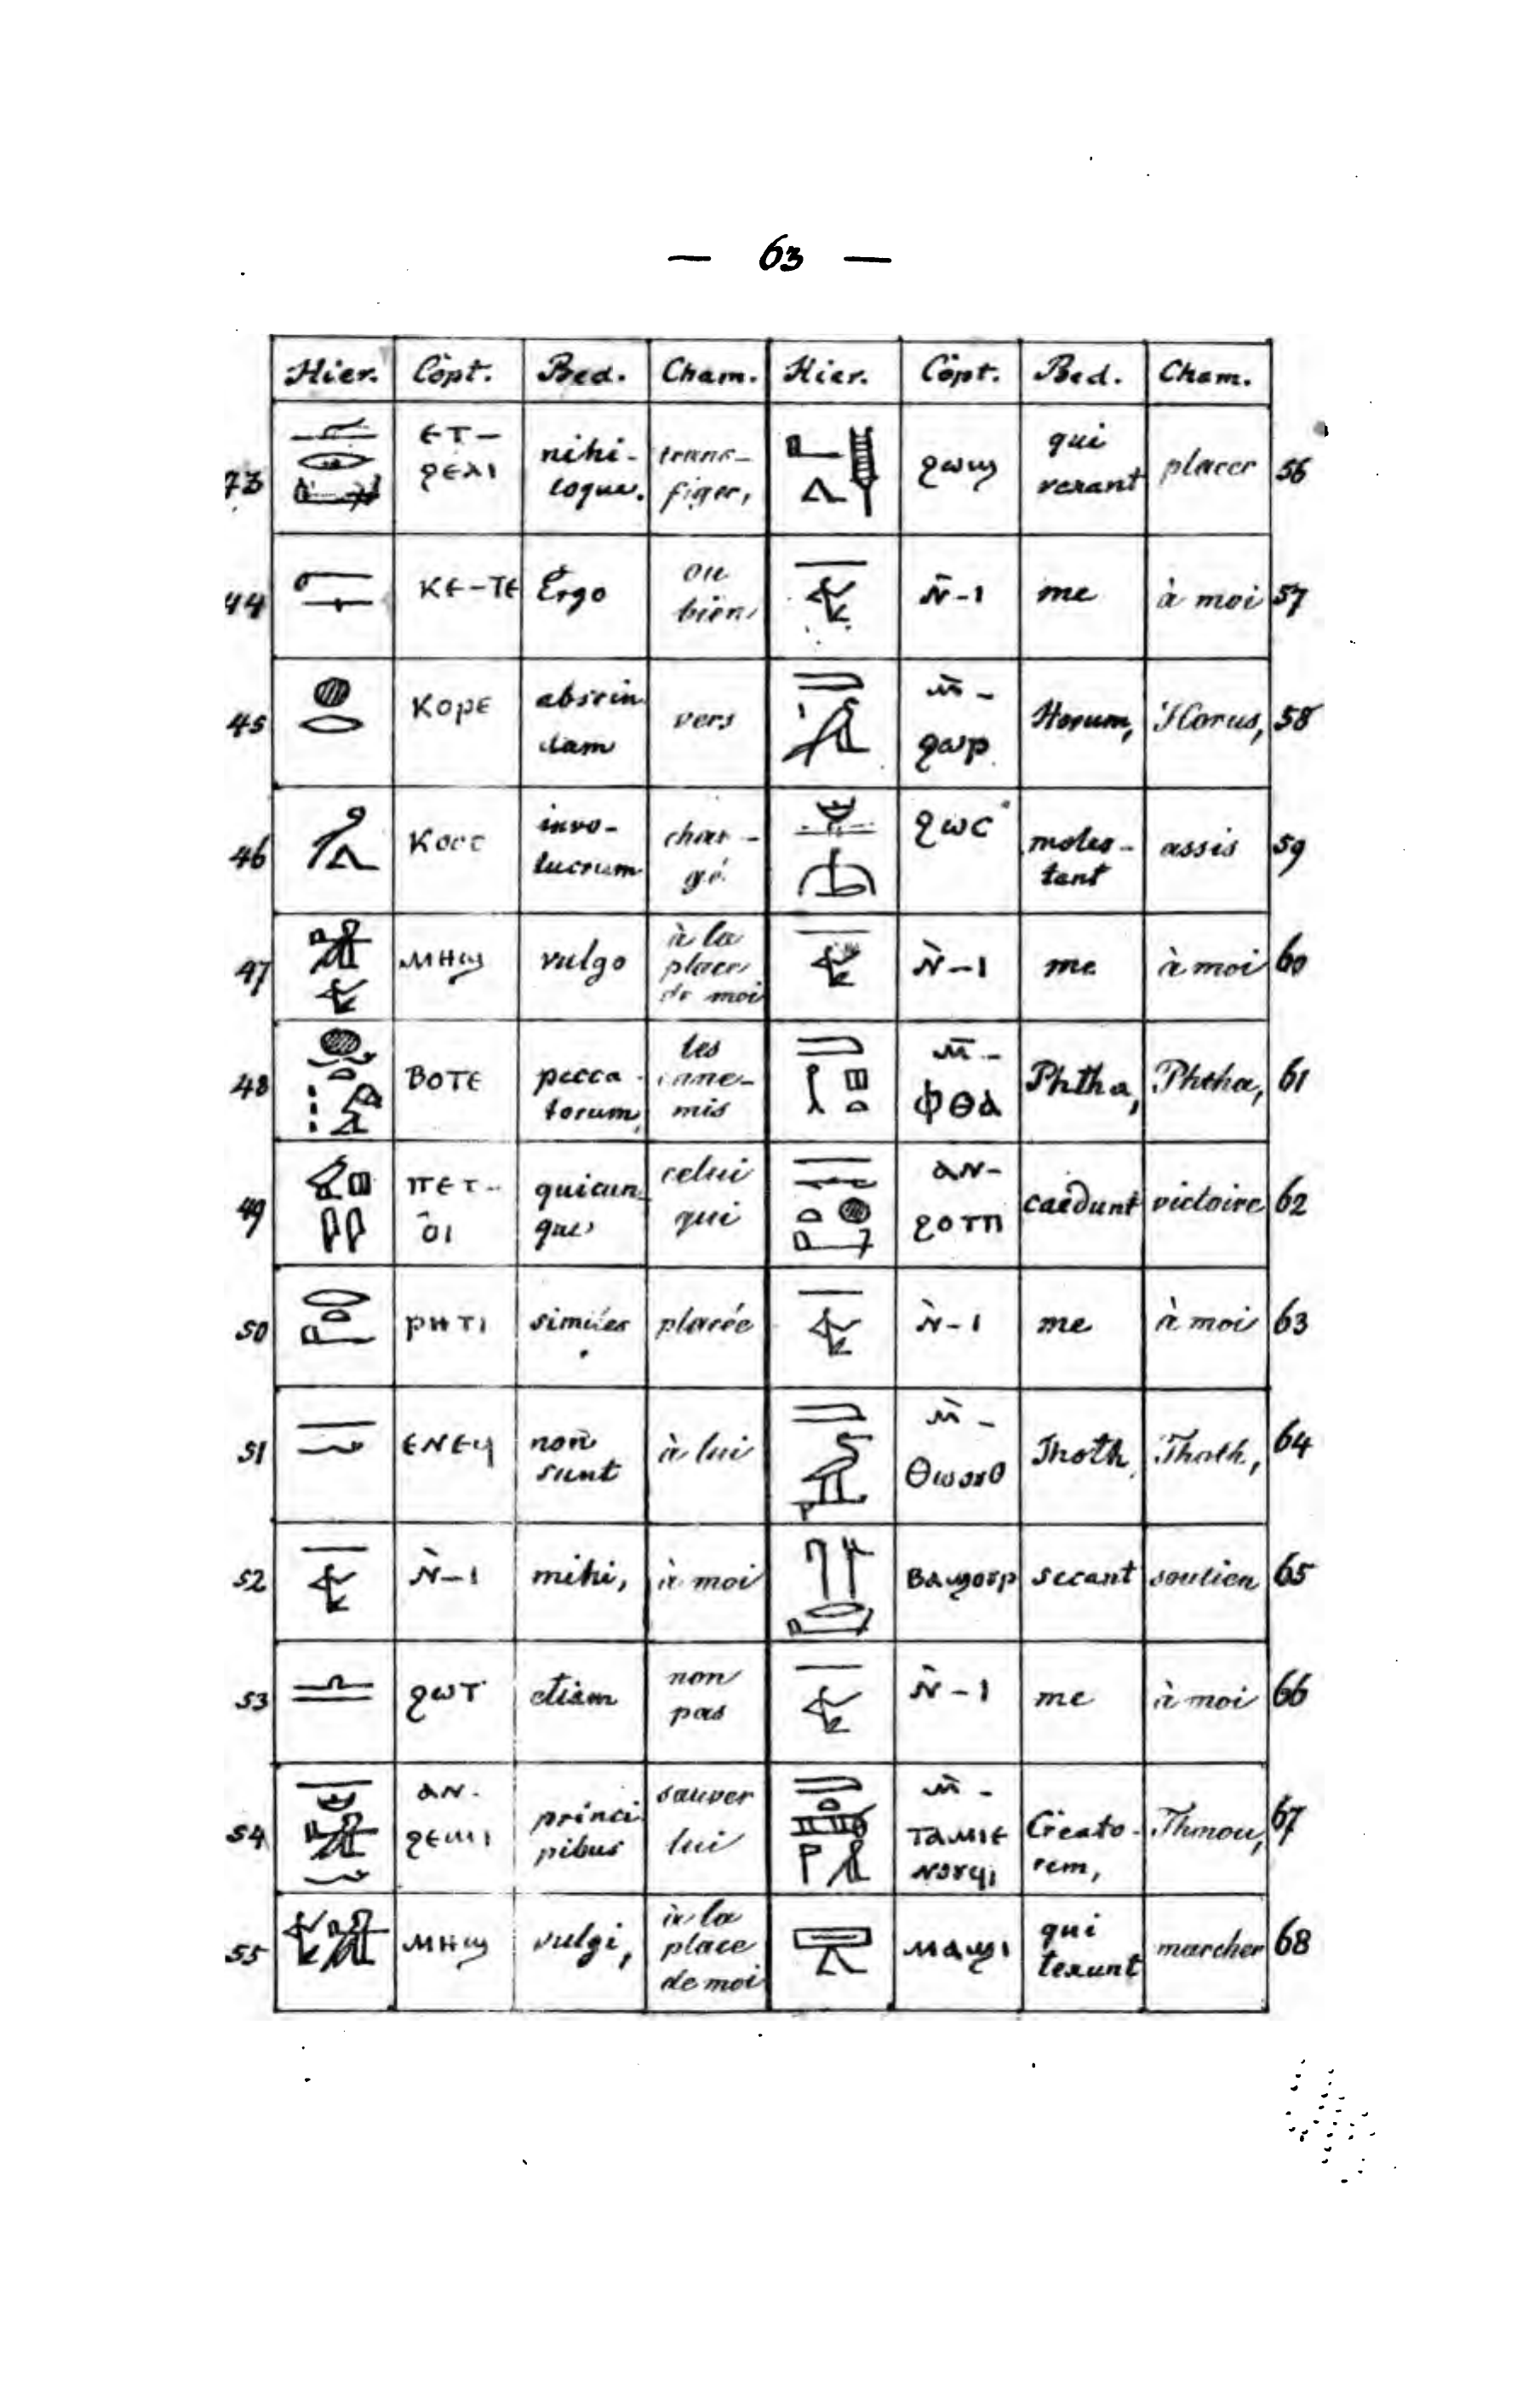 — 63 —
Hier. Copt. Bed. Cham. Hier. Copt. Bed. Cham.
73 ⲉⲧ- ϩⲉⲗⲓ nihi- loque. trans- figer, ϩⲱϣ qui vexant placer 56
44 ⲕⲉ-ⲧⲉ Ergo ou bien ⲛ̀-ⲓ me à moi 57
45 ⲕⲟⲣⲉ abscin dam vers ⲙ̄- ϩⲱⲣ Horum, Horus, 58
46 ⲕⲟⲥⲥ invo- lucrum char- gé ϩⲱⲥ moles- tant assis 59
47 ⲙⲏϣ vulgo à la place de moi ⲛ̀-ⲓ me à moi 60
48 ⲃⲟⲧⲉ pecca- torum, les enne- mis ⲙ̄- ⲫⲑⲁ Phtha, Phtha, 61
49 ⲡⲉⲧ- ⲟ̂ⲓ quicun- que celui qui ⲁⲛ- ϩⲟⲧⲡ caedunt victoire 62
50 ⲣⲏϯ similes placée ⲛ̀-ⲓ me à moi 63
51 ⲉⲛⲉϥ non sunt à lui ⲙ̀- ⲑⲱⲟⲩⲑ Thoth, Thoth, 64
52 ⲛ̀-ⲓ mihi, à moi ⲃⲁϣⲟⲩⲣ secant soutien 65
53 ϩⲱⲧ etiam non pas ⲛ̀-ⲓ me à moi 66
54 ⲁⲛ- ϩⲉⲙⲓ princi pibus sauver lui ⲙ̀- ⲧⲁⲙⲓⲉ ⲛⲟⲩϥⲓ Creato- rem, Thmou, 67
55 ⲙⲏϣ vulgi, à la place de moi ⲙⲁϣⲓ qui texunt marcher 68